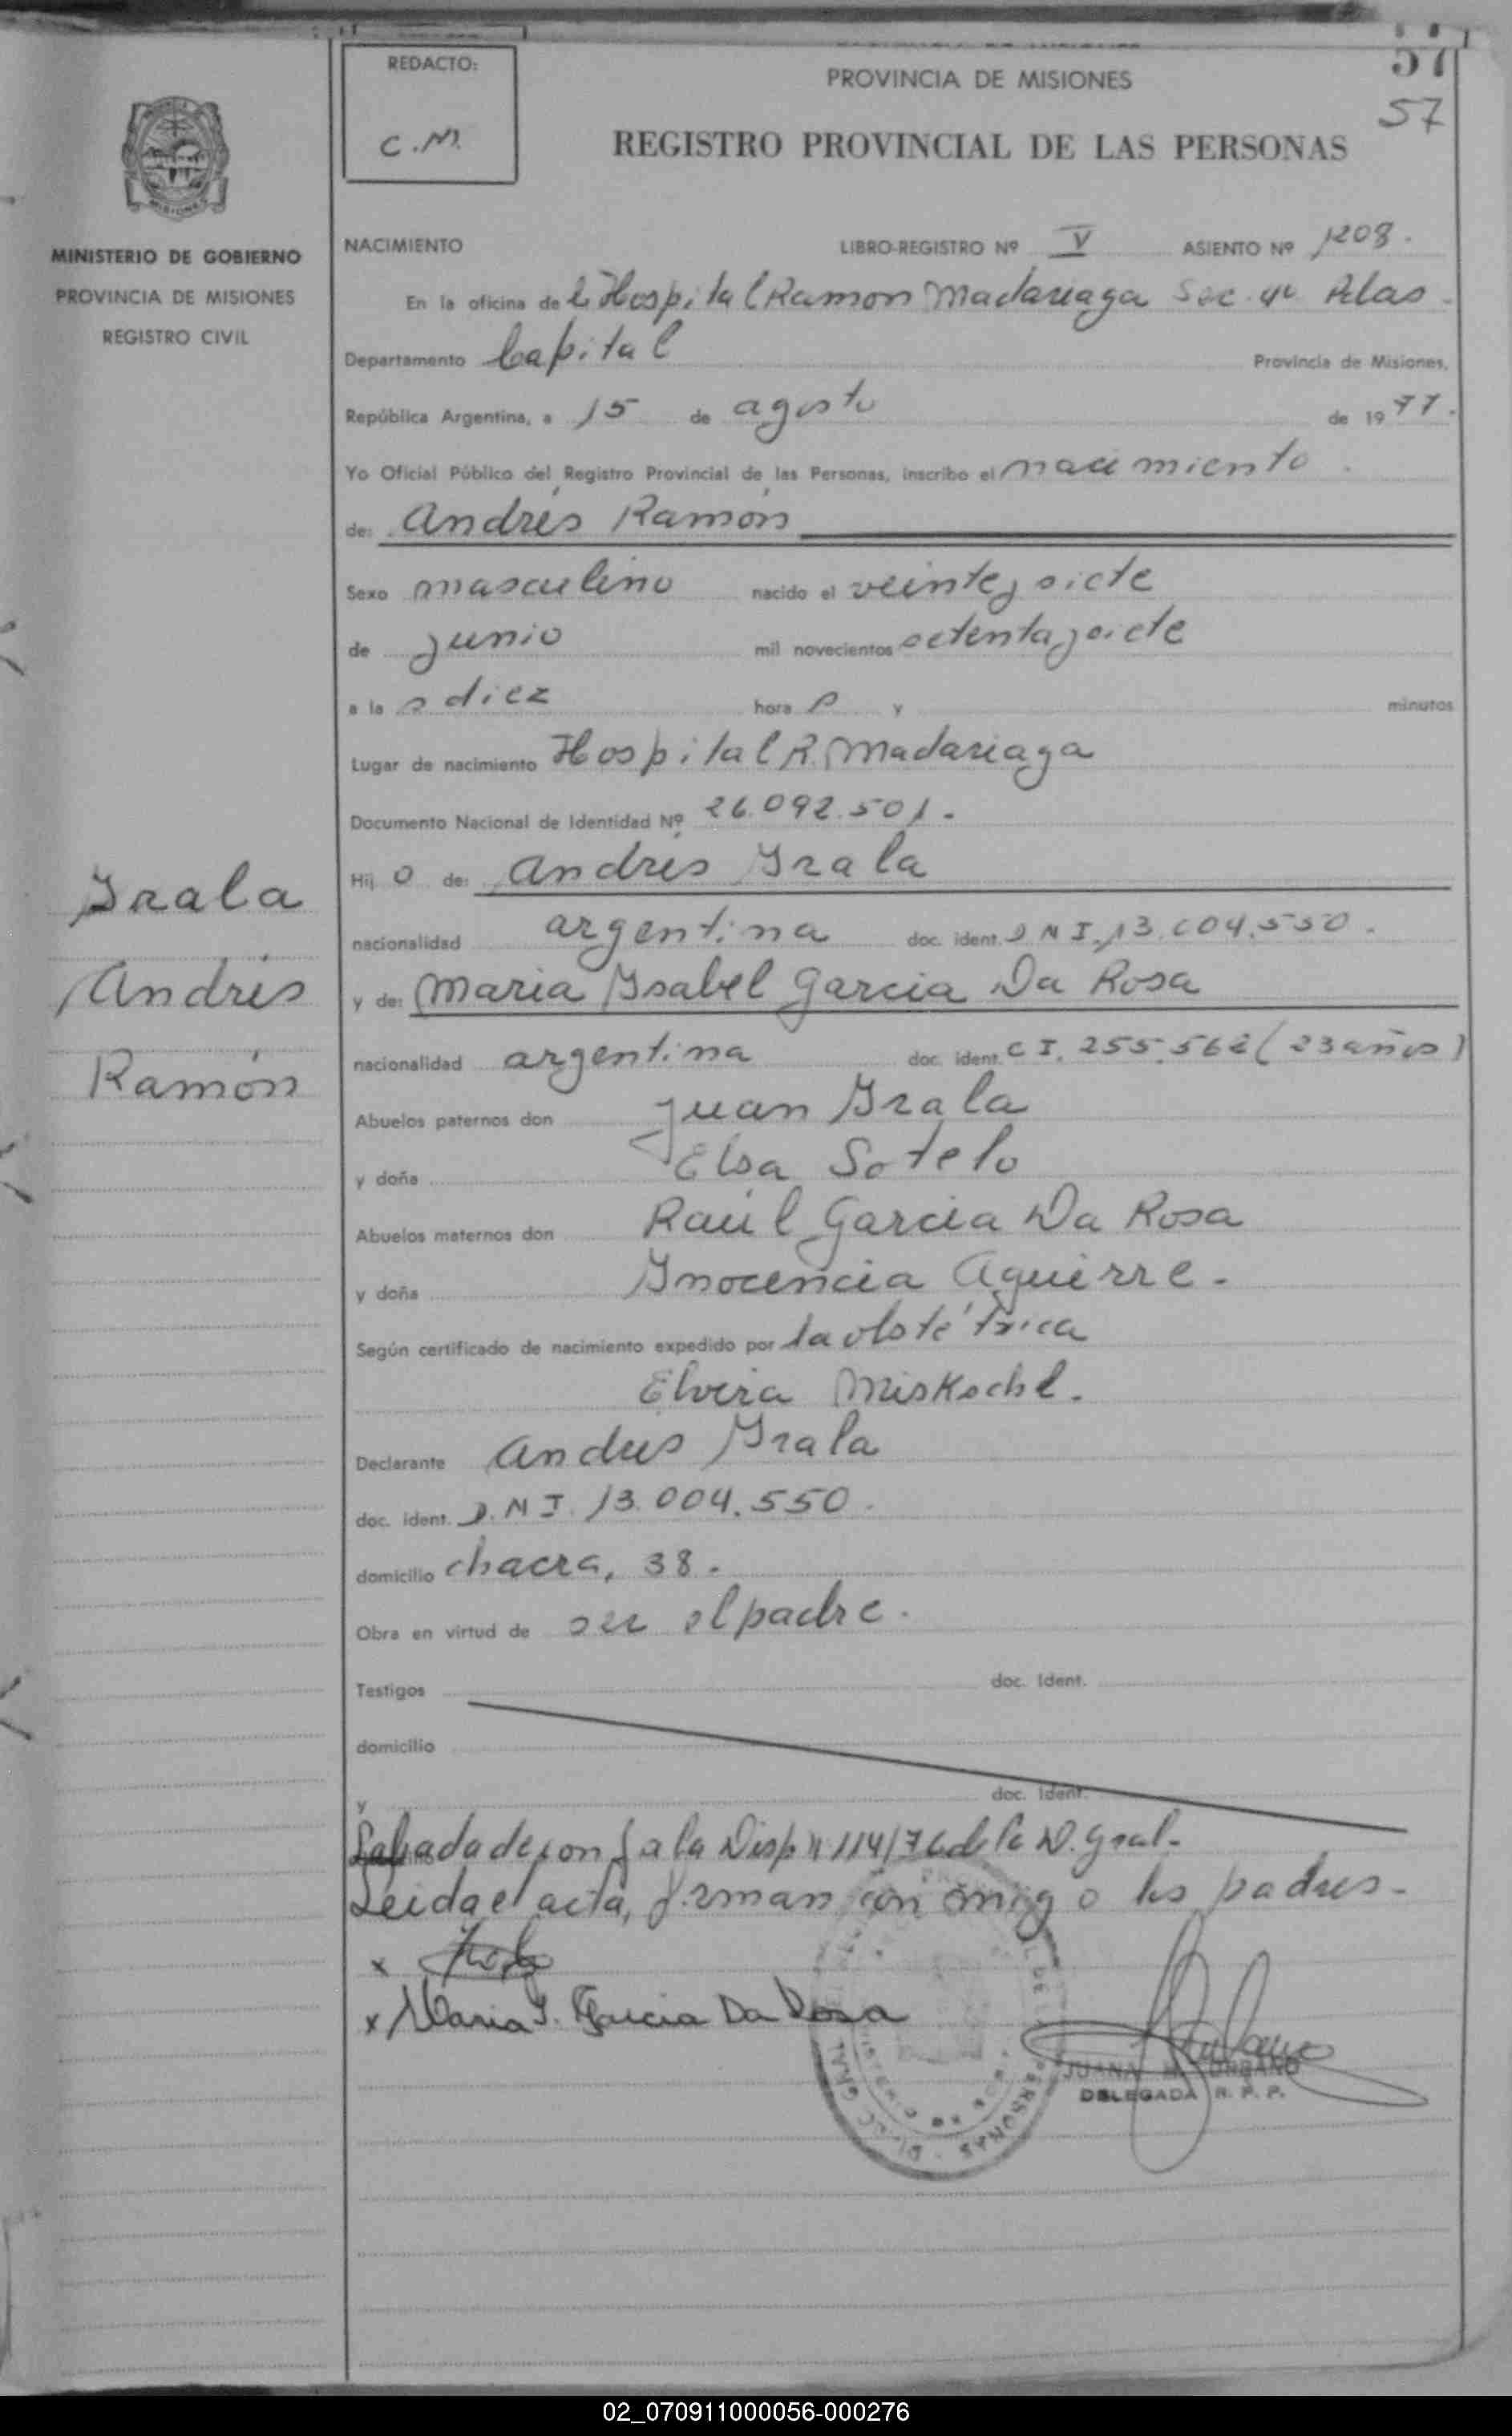 57
57
REDACTO:
C.M.
PROVINCIA DE MISIONES
REGISTRO PROVINCIAL DE LAS PERSONAS
MISIONES
MINISTERIO DE GOBIERNO
PROVINCIA DE MISIONES
REGISTRO CIVIL
NACIMIENTO LIBRO-REGISTRO Nº V ASIENTO Nº 1208.
En la oficina de l Hospital Ramon Madariaga Sec. 4ta Pdas.
Departamento Capital Provincia de Misiones,
República Argentina, a 15 de agosto de 1977.
Yo Oficial Público del Registro Provincial de las Personas, inscribo el nacimiento.
de: Andrés Ramón
Sexo masculino nacido el veintey siete
de junio mil novecientos setentaysiete
a la s diez hora s y minutos
Lugar de nacimiento Hospital R. Madariaga
Documento Nacional de Identidad Nº 26.092.501.
Hij o de: Andrés Irala
nacionalidad argentina doc. ident. D N I. 13.004.550.
y de: Maria Ysabel Garcia Da Rosa
nacionalidad argentina doc. ident. C I. 255.562 (23 años)
Abuelos paternos don Juan Irala
y doña Elsa Sotelo
Abuelos maternos don Raúl Garcia Da Rosa
y doña Ynocencia Aguirre.
Según certificado de nacimiento expedido por la obstétrica
Elvira Miskochl.
Declarante Andres Irala
doc. ident. D. N I. 13.004.550.
domicilio chacra, 38.
Obra en virtud de ser el padre.
Testigos doc. Ident.
domicilio
y doc. Ident.
a la Disp nº 114/76 de la D. Gral.
Leida el acta, firman conmigo los padres.
x Irala
x Maria Y. Garcia Da Rosa
JUANA URBANO
DELEGADA R. P. P.
Irala
Andrés
Ramón
02_070911000056-000276